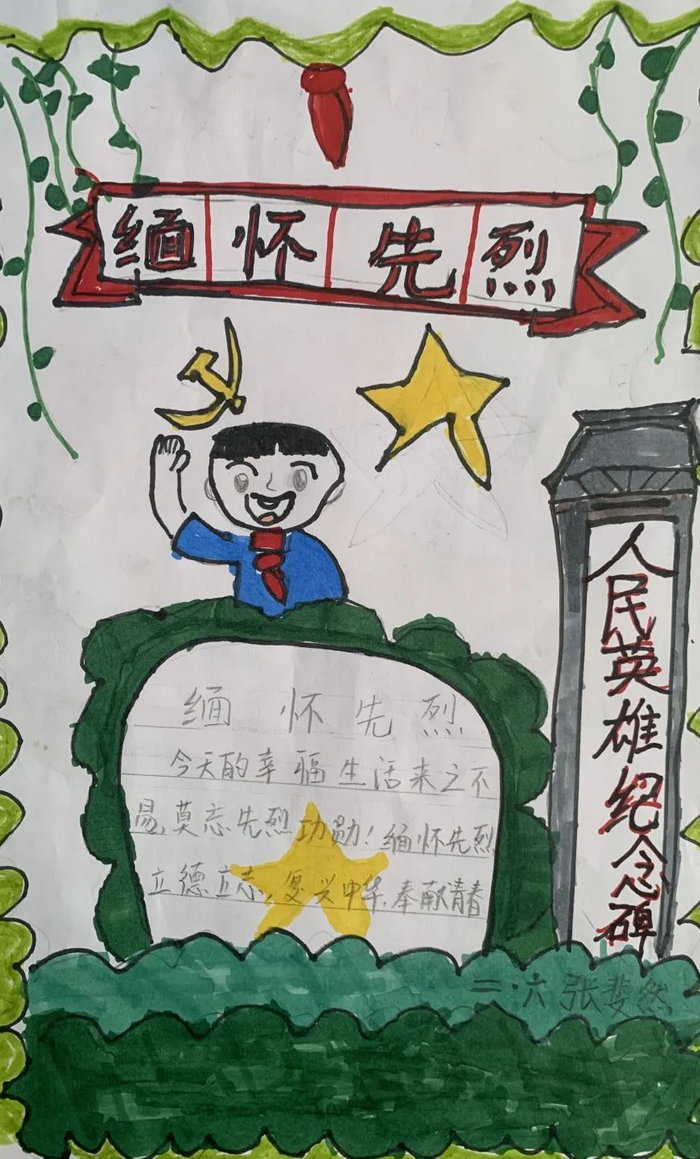 缅怀先烈
人民英雄纪念碑
缅怀先烈
今天的幸福生活来之不
易,莫忘先烈功勋!缅怀先烈
立德立志,复兴中华,奉献青春
二·六 张斐然